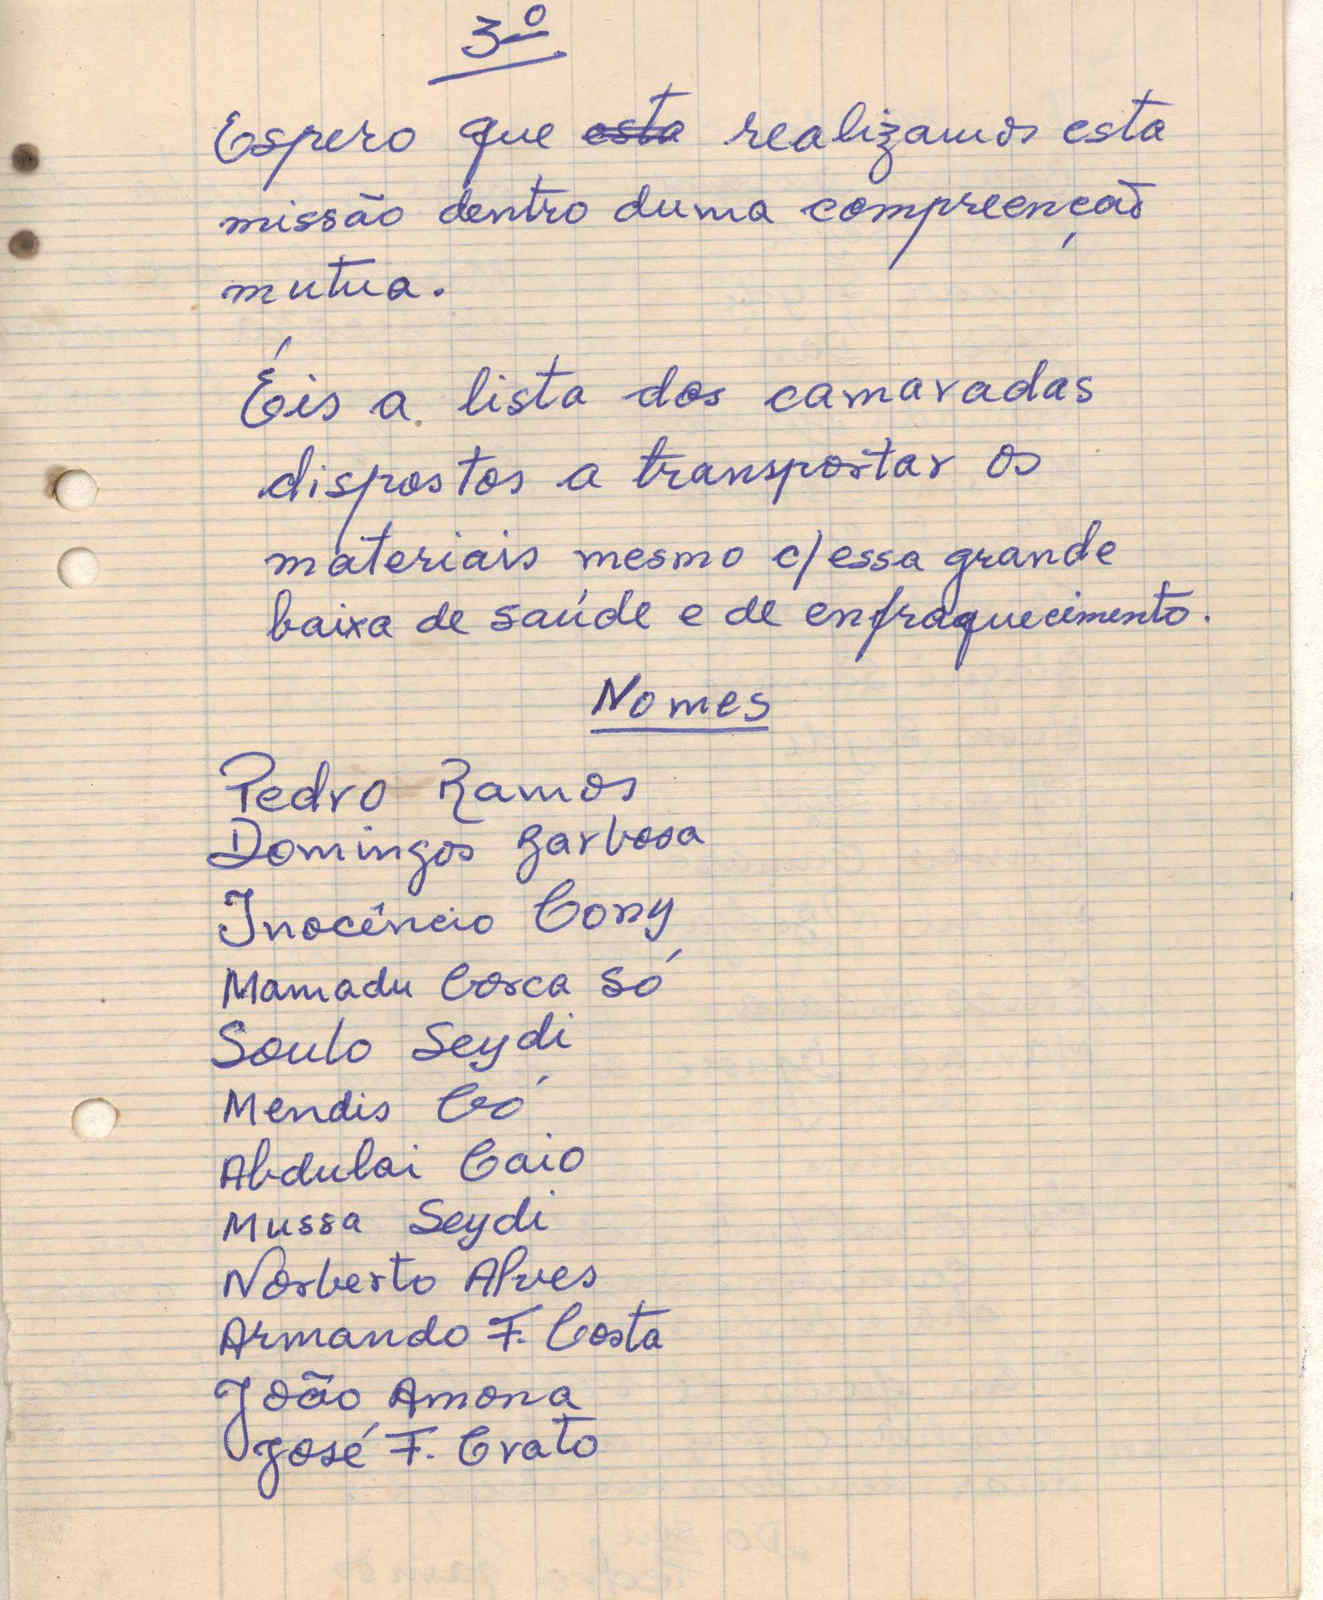 3º
Espero que esta realizamos esta
missão dentro duma compreenção
mutua.
Éis a lista dos camaradas
dispostos a transportar os
materiais mesmo c/essa grande
baixa de saúde e de enfraquecimento.
Nomes
Pedro Ramos
Domingos Barbosa
Inocêncio Cony
Mamadu Corca Só
Soulo Seydi
Mendis Có
Abdulai Caio
Mussa Seydi
Norberto Alves
Armando F. Costa
João Amona
José F. Crato